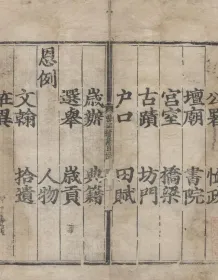 公署
壇廟 書院
宮室 橋梁
古蹟 坊門
户口 田賦
歲辦 典籍
選舉 歲貢
恩例 人物
文翰 拾遺